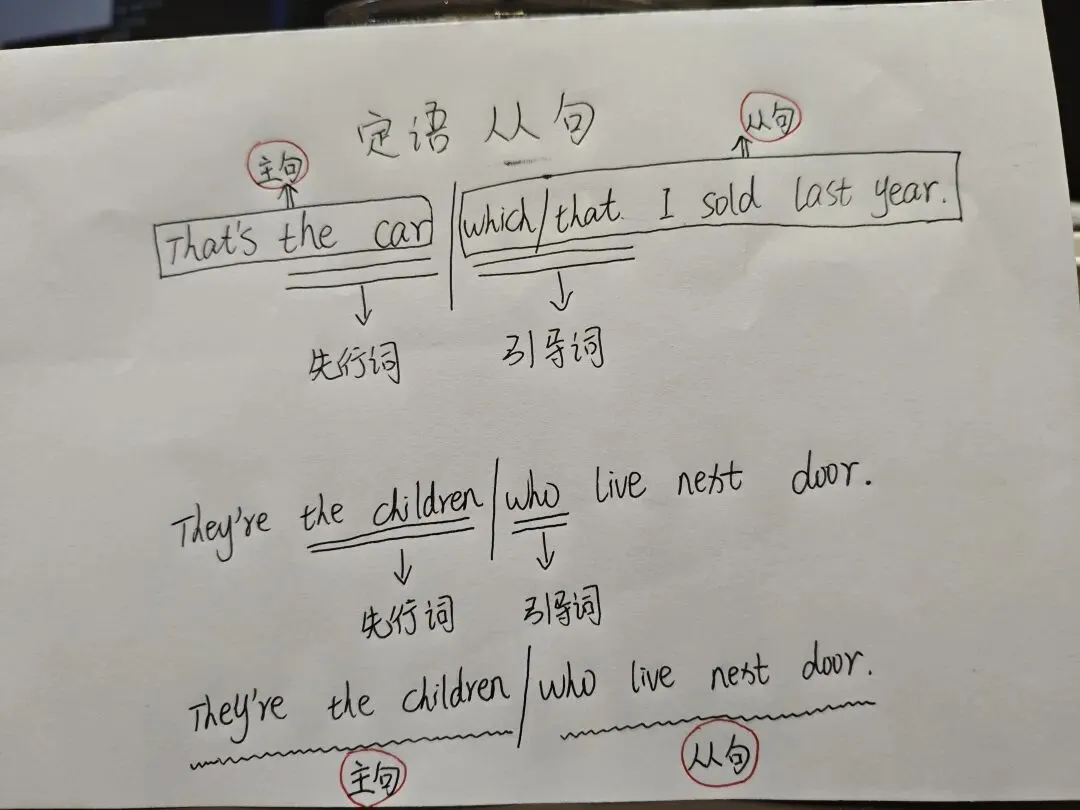 定语从句
主句 从句
That's the car which/that. I sold last year.
先行词 引导词
They're the children who live next door.
先行词 引导词
They're the children who live next door.
主句 从句